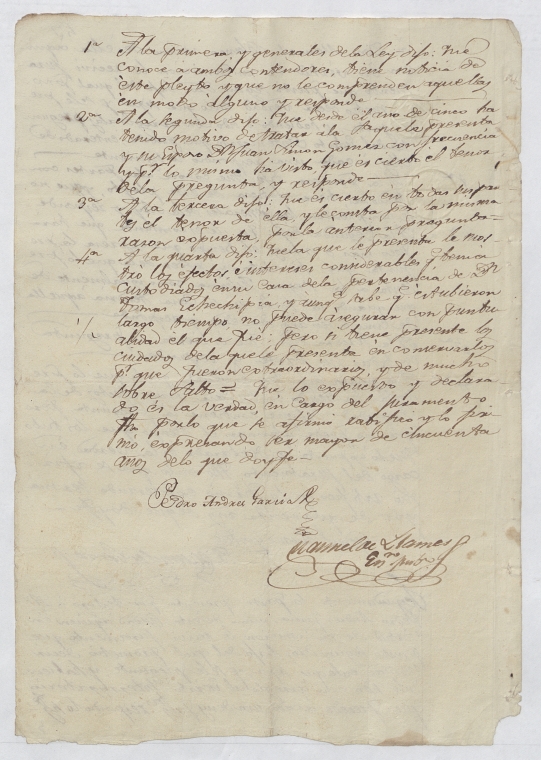 1ª A la primera y generales de la Ley dijo: Que
conoce à ambos contendores, tiene noticia de
este pleyto y que no le comprenden aquellas
en modo alguno y responde
2ª A la segunda dijo: Que desde el año de cinco ha
tenido motivo de tratar à la que le presenta
y su Esposo Dn Juan Simon Gomez con frecuencia
y pr lo mismo ha visto, que es cierto el tenor
de la pregunta, y responde
3ª A la tercera dijo: Que es cierto en todas sus par
tes el tenor de ella, y le consta por la misma
razon expuesta, en la anterior pregunta
4ª A la quarta dijo: Que la que le presenta le mos
tro los efectos, è intereses considerables que tenia
custodiados en su casa de la pertenencia de Dn
Tomas Echechipia, y aunqe sabe qe estubieron
largo tiempo no puede asegurar con puntu
alidad el que fué; pero si tiene presente los
cuidados de la que le presenta en conservarlos
pr que fueron extraordinarios, y de mucho
sobre salto = Que lo expuesto y declara
do es la verdad, en cargo del juramento
fho por lo que se afirmó ratificó y lo fir
mó, expresando ser mayor de cincuenta
años de lo que doy fe
Pedro Andres Garcia
Manuel de Llames
Enno pubo